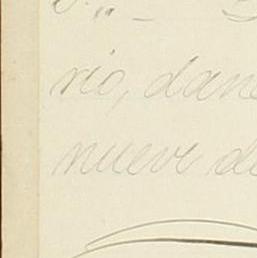 rio, dan
nueve de